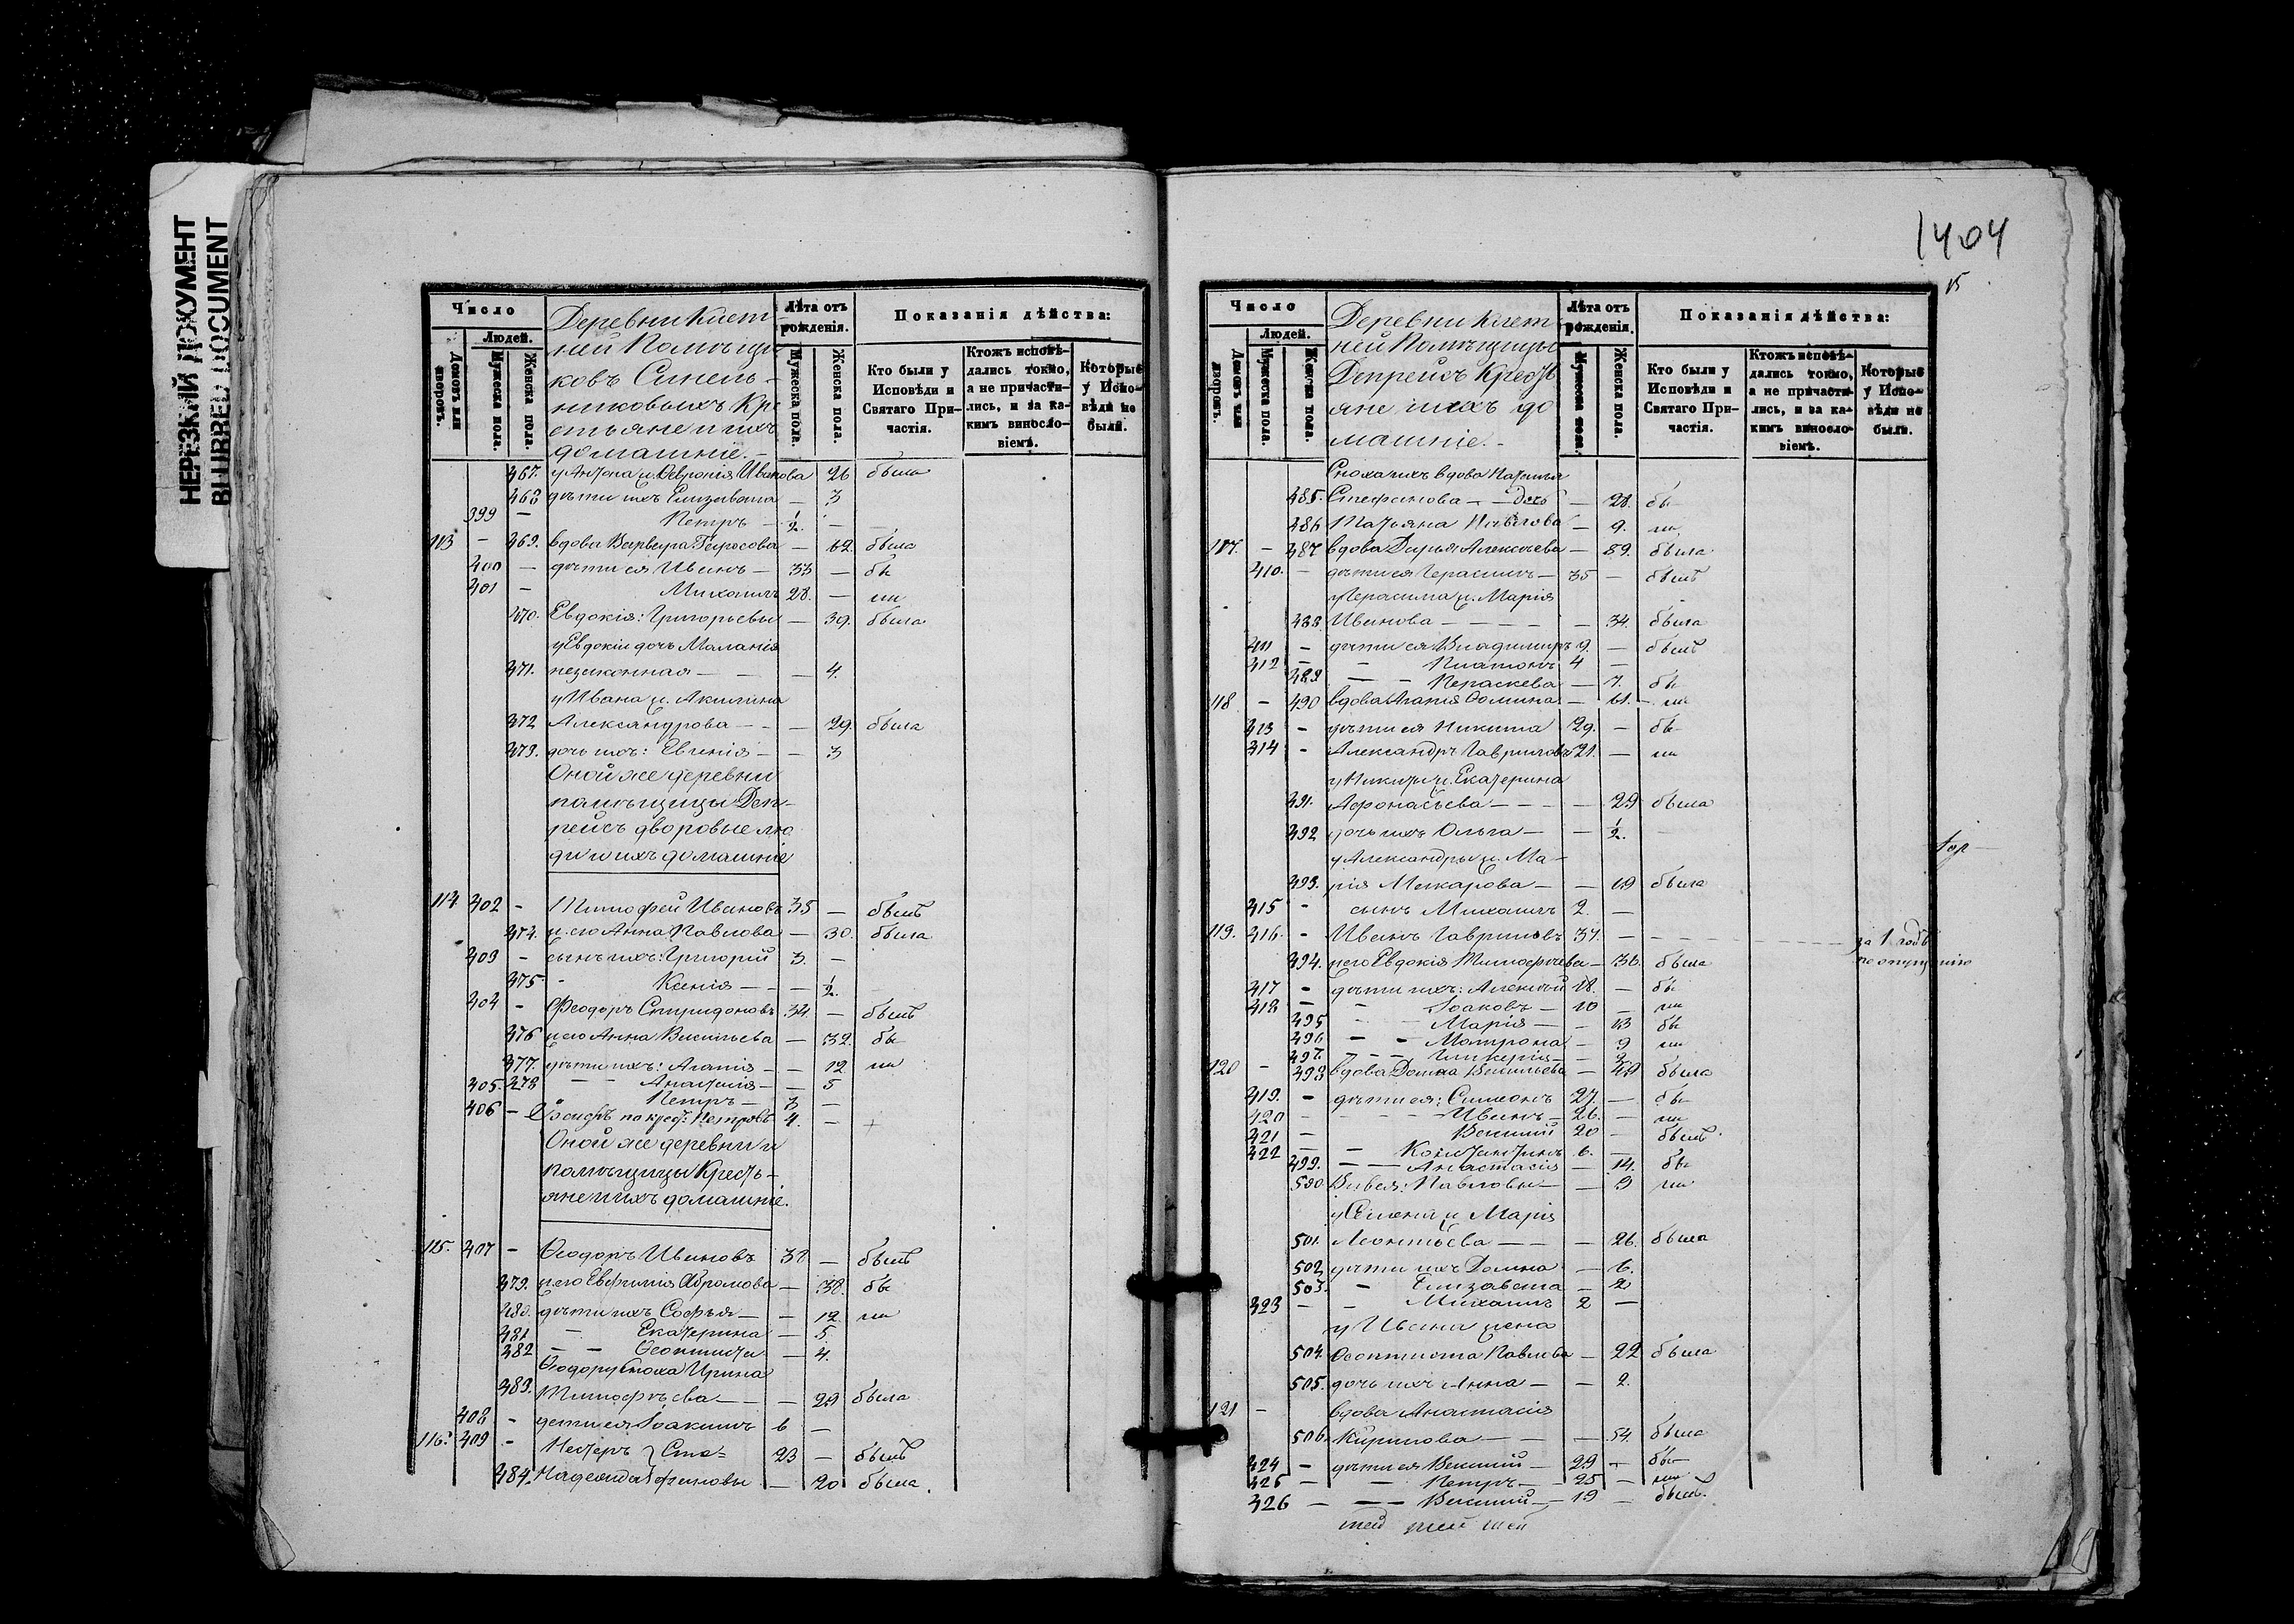 НЕРЕЗКИЙ ДОКУМЕНТ
BLURRED DOCUMENT
Число
Людей.
Домовъ или дворовъ.
Мужеска пола.
Женска пола.
Деревни Клет-
ней Помѣщи-
ковъ Синель-
никовыхъ Кре
стьяне и ихъ
домашніе.-
Лѣта отъ рожденія.
Мужеска пола.
Женска пола.
Показанія дѣйства:
Кто были у Исповѣди и Святаго При-частія.
Ктожъ исповѣ-дались токмо, а не причасти-лись, и за ка-кимъ виносло-віемъ.
Которые у Испо-вѣди не были.
467. у Антона ж. Февронія Иванова 26 была
468 дѣти ихъ Елизавета — 3
399 — Петръ — 1/2. —
113 — 469. вдова Варвара Тарасова — 62. была
400 — дѣти ея Иванъ — 33 — бы
401 — Михаилъ 28. — ли
470. Евдокія: Григорьевы — 39. была
у Евдокіи дочь Маланія
471. незаконная — — — 4.
у Ивана ж. Акилина
472 Александрова — — — 29. была
473. дочь ихъ: Евгенія — — 3
Оной же деревни
помѣщицы Деп-
рейсъ дворовые лю
ди и ихъ домашніе
114 402 — Тимофей Ивановъ 35 — былъ
474. ж. его Анна Павлова — 30. была
403 — сынъ ихъ: Григорій 3. —
475 — Ксенія — — — 1/2.
404 — Феодоръ Спиридоновъ 34. — былъ
476 ж его Анна Васильева — 32. бы
477. дѣти ихъ: Агапія — — 12 ли
405. 478 — — Анастасія — — 5
Петръ — 3 —
406 — Іосифъ по крест. Петровъ 4. — +
Оной же деревни и
помѣщицы Кресть-
яне и ихъ домашніе.
115. 407 — Феодоръ Ивановъ 37. — былъ
479. ж его Евфимія Абрамова — 38. бы
480. дѣти ихъ Софья — — 12. ли
481 — Екатерина — 5.
482 — — Феоктиста — 4.
Феодору сноха Ирина
483. Тимофѣева — — — 29 была
408 — дети ея Іоакимъ 6 —
116. 409 — Нестеръ } Сте- 23 — былъ
484. Надежда } фановы — 20 была.
1404
15
Число
Людей.
Домовъ или дворовъ.
Мужеска пола.
Женска пола.
Деревни Клет
ней Помѣщицы
Депрейсъ Крестья
яне и ихъ до
машніе.-
Лѣта отъ рожденія.
Мужеска пола.
Женска пола.
Показанія дѣйства:
Кто были у Исповѣди и Святаго При-частія.
Ктожъ исповѣ-дались токмо, а не причасти-лись, и за ка-кимъ винослo-віемъ.
Которые у Испо-вѣди не были.
Сноха ихъ вдова Наталья
485. Стефанова — — дочь — 28. бы
486 Татьяна Павлова — 9. ли
117. — 487 вдова Дарья Алексѣева — 59. была
410. — дѣти ея Герасимъ — 35 — былъ
у Герасима ж. Марія
488 Иванова — — — — — 34. была
411 — дѣти ея Владимиръ 9. — былъ
412 — — Платонъ 4 —
489 — — Параскева — 7. бы
118 — 490 вдова Агапія Фомина — 61. — ли
413 — дѣти ея Никита 29. — бы
414 — Александръ Гавриловъ 21. — ли
у Никиты ж. Екатерина
491. Афонасьева — — — — 29 была
492 дочь ихъ Ольга — — 1/2.
у Александры ж. Ма-
493. рія Макарова — — 19 была
415 — сынъ Михаилъ 2. —
119. 416. — Иванъ Гавриловъ 37. — за 1 годъ
по опущенію
494. ж его Евдокія Тимофѣева — 36. была
417 — дѣти ихъ: Алексѣй 18. — бы
418 — — Іоаковъ — 10 — ли
495 — — Марія — — 13 бы
496 — — Матрона — 9 ли
497. — — Гликерія — — 3
120 — 498 вдова Домна Васильева — 49 была
419. — дѣти ея: Симеонъ 27. — бы
420 — — — — Иванъ — 26. — ли
421 — Василій 20 — былъ.
422 — — Константинъ 6. —
499. — — Анастасія — 14. бы
500 Павловы — — 9 ли
у Симеона ж Марія
501. Леонтьева — — — 26. была
502 дѣти ихъ Домна — 6.
503. — Елизавета — 2
423 — — Михаилъ 2 —
у Ивана жена
504. Феоктиста Павлова — 22 была
505. дочь ихъ Анна — — 2.
121 — вдова Анастасія
506. Кирилова — — — 54. была
424 — дѣти ея Василій — 29 — бы
425 — — Петръ — 25 — ли
426 — — — Василій — 19 — былъ.